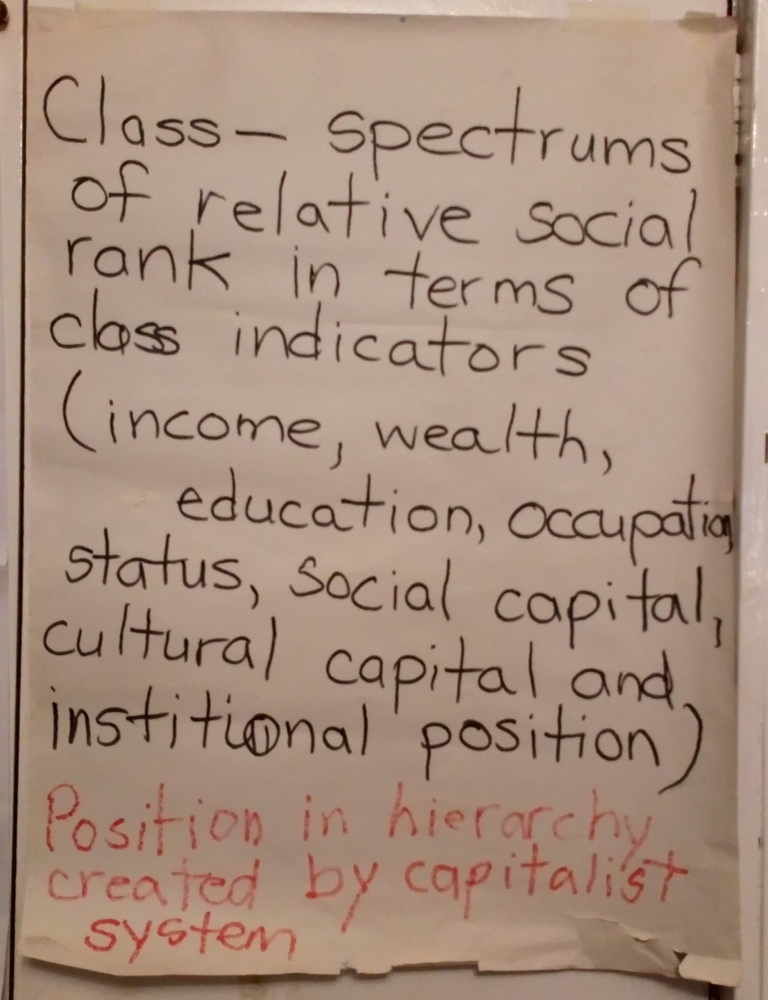 Class— spectrums
of relative social
rank in terms of
class indicators
(income, wealth,
education, occupation
status, social capital,
cultural capital and
institional position)
Position in hierarchy
created by capitalist
system